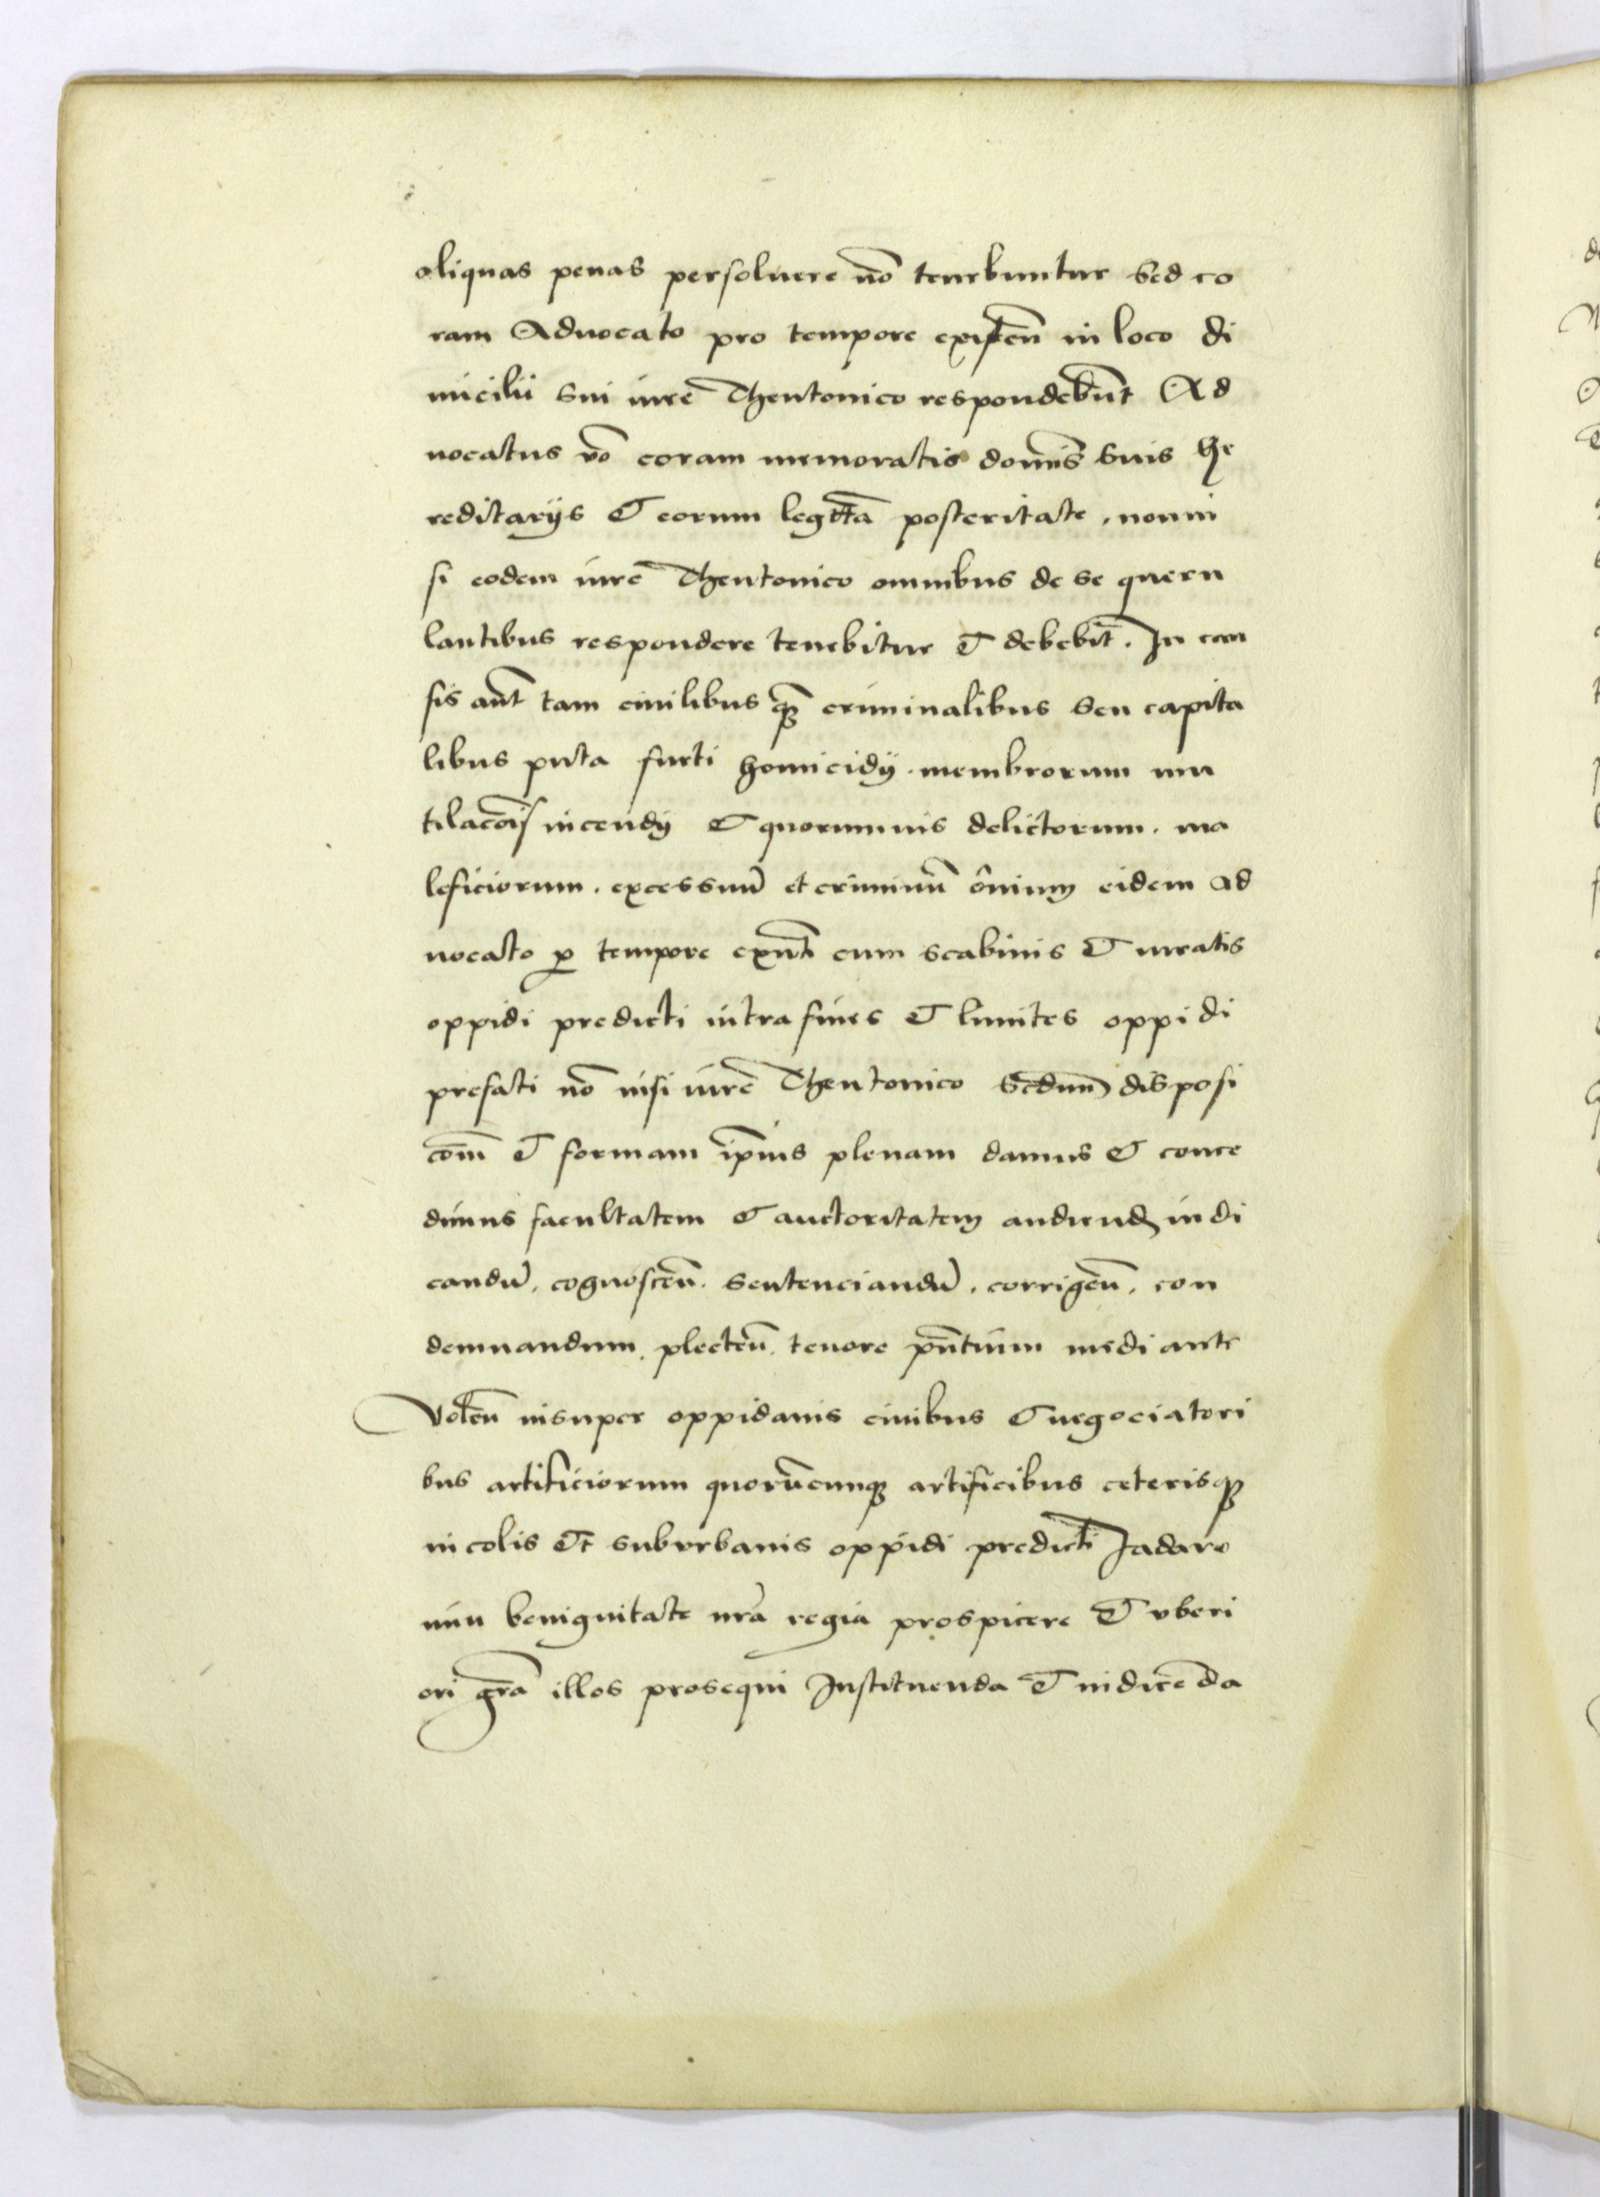 aliquas penas persoluere nō tenebuntur sed co
ram Aduocato pro tempore existeñ in loco di
micilii sui iure Theutonico respondebunt Ad
uocatus vo coram memoratis dominis suis he
reditariis & eorum legitta posteritate, nonni
si eodem iure Theutonico omnibus de se queru
lantibus respondere tenebitur & debebit. In cau
sis aut tam ciuilibus qz criminalibus seu capita
libus puta furti homicidij. membrorum mu
tilacois incendij & quorumuis delictorum. ma
leficiorum. excessuū et criminū oīnium eidem ad
uocato p tempore exnti cum scabinis & iuratis
oppidi predicti intra fines & limites oppidi
prefati nō nisi iure Theutonico scdum disposi
com & formam ipius plenam damus & conce
dimus facultatem & auctoritatem audiend iudi
candū, cognosceñ. sentenciandū. corrigeñ, con
demnandum, plecteñ, tenore pñtium mediante
Voleñ insuper oppidanis ciuibus & negociatori
bus artificiorum quorūcunqz artificibus ceterisqz
incolis Et suburbanis oppidi predicti Jadaro
nin benignitate nra regia prospicere & vberi
ori gra illos prosequi Instituenda & indicēda